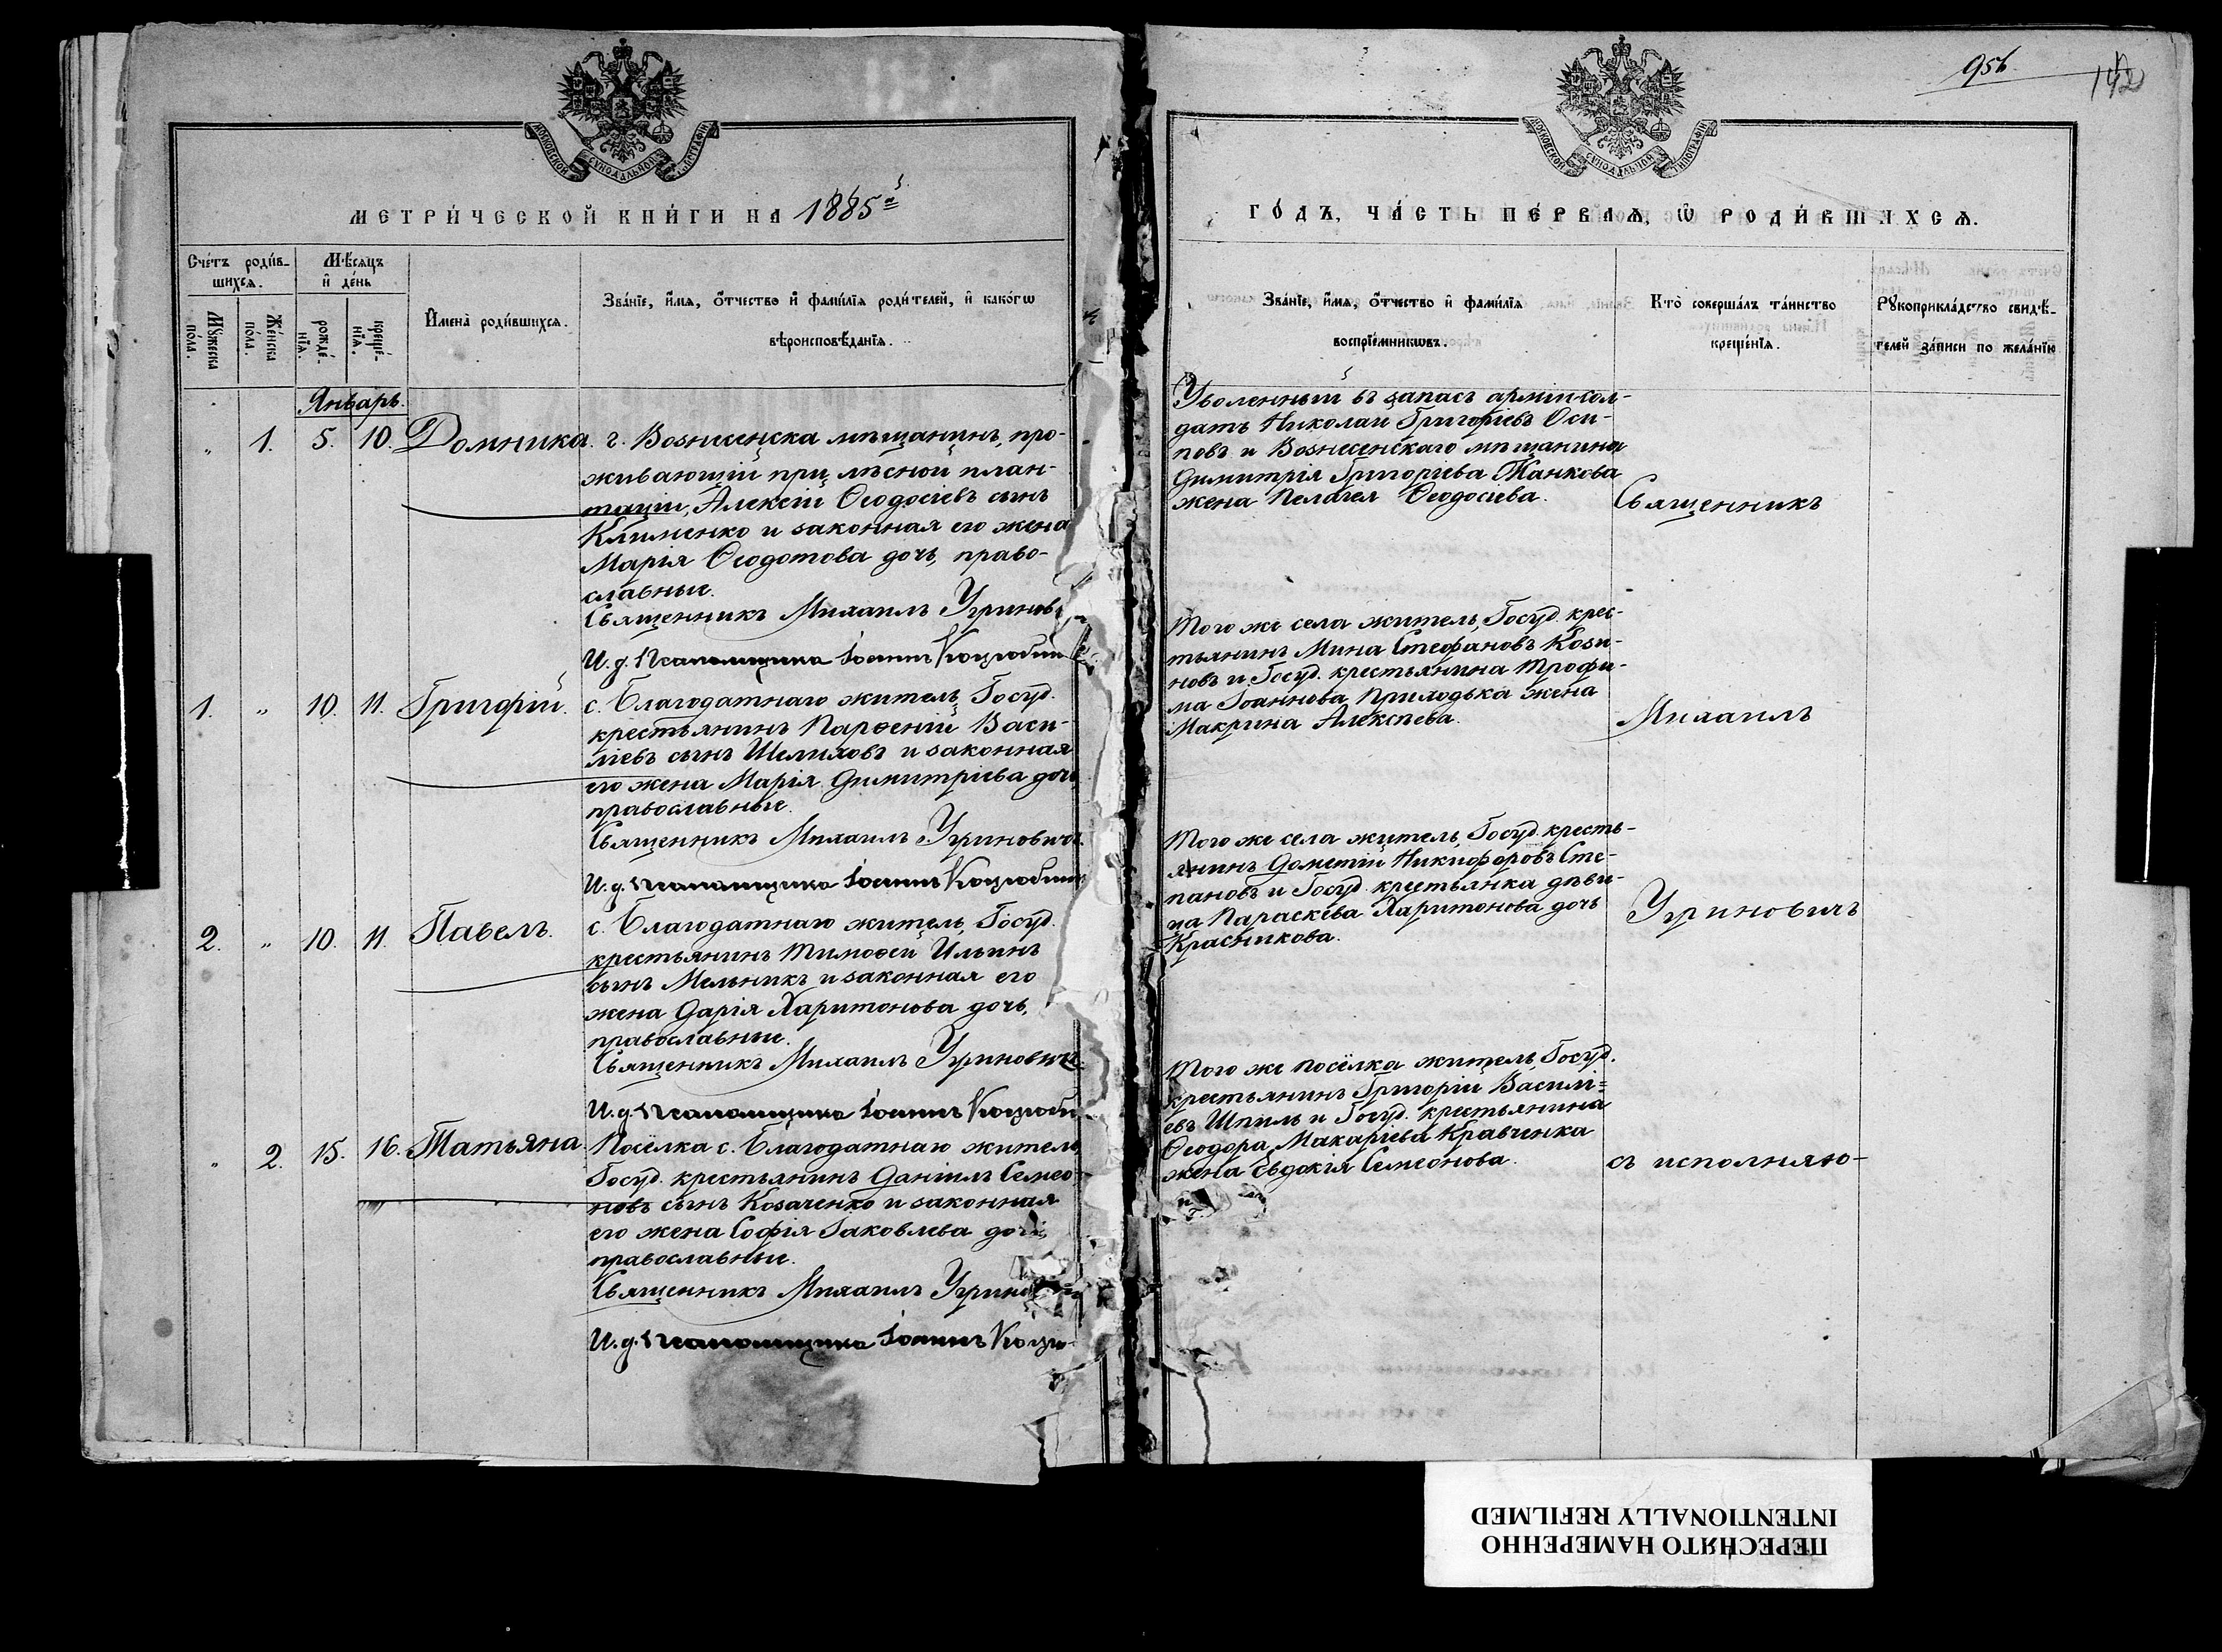 МОСКОВСКОЙ СѴНОДАЛЬНОЙ ТИПОГРАФІИ
МЕТРИ́ЧЕСКОЙ КНИ́ГИ НА 1885й
Сче́тъ роди́в-
шихсѧ.
Мѣ́сяцъ
и҆ де́нь
Мꙋ́жеска
по́ла.
Же́нска
по́ла.
рожде́-
нїѧ.
креще́-
нїѧ.
И҆мена̀ роди́вшихсѧ.
Зва́нїе, и҆́мѧ, ѻ҆́тчество и҆ фами́лїѧ роди́телей, и҆ како́гѡ
вѣроисповѣ́данїѧ.
Январь.
" 1. 5. 10. Домника. г. Вознесенска мѣщанинъ, про-
живающій при лѣсной план-
таціи, Алексій Ѳеодосіевъ сынъ
Клименко и законная его жена
Марія Ѳеодотова дочь, право-
славные.
Священникъ Михаилъ Угринов
И. д. Псаломщика Іоаннъ Коцюбин
1. " 10. 11. Григорій. с. Благодатнаго житель, Госуд.
крестьянинъ Парѳеній Васи-
ліевъ сынъ Шелиховъ и законная
его жена Марія Димитріева дочь
православные.
Священникъ Михаилъ Угриновичъ.
И. д. Псаломщика Іоаннъ Коцюбин
2. " 10. 11. Павелъ. с. Благодатнаго житель, Госуд.
крестьянинъ Тимоѳей Ильинъ
сынъ Мельникъ и законная его
жена Дарія Харитонова дочь,
православные.
Священникъ Михаилъ Угриновичъ.
И. д. Псаломщика Іоаннъ Коцюби
" 2. 15. 16. Татьяна. Посёлка с. Благодатнаго житель
Госуд. крестьянинъ Даніилъ Семео
новъ сынъ Козаченко и законная
его жена Софія Іаковлева дочь
православные.
Священникъ Михаилъ Угрино
И. д. Псаломщика Іоаннъ Коцю-
956.
МОСКОВСКОЙ СѴНОДАЛЬНОЙ ТИПОГРАФІИ
ГО́ДЪ, ЧА́СТЬ ПЕ́РВАѦ, Ѡ҆ РОДИ́ВШИХСѦ.
Зва́нїе, и҆́мѧ, ѻ҆́тчество и҆ фами́лїѧ
воспрїе́мникѡвъ.
Кто̀ соверша́лъ та́инство
креще́нїѧ.
Рꙋкоприкла́дство свидѣ́-
телей за́писи по жела́нїю
Уволенный въ запасъ арміи сол-
датъ Николай Григоріевъ Оси-
повъ и Вознесенскаго мѣщанина
Димитрія Григоріева Танкова
жена Пелагея Ѳеодосіева.
Священникъ
Того же села житель, Госуд. крес-
тьянинъ Мина Стефановъ Кози-
новъ и Госуд. крестьянина Трофи-
ма Іоаннова Приходька жена
Макрина Алексѣева.
Михаилъ
Того же села житель, Госуд. кресть-
янинъ Дометій Никифоровъ Сте-
пановъ и Госуд. крестьянка дѣви-
ца Параскева Харитонова дочь
Красникова.
Угриновичъ
Того же посёлка житель, Госуд.
крестьянинъ Григорій Василі=
евъ Шпиль и Госуд. крестьянина
Ѳеодора Макаріева Кравченка
жена Евдокія Семеонова.
съ исполняю-
ПЕРЕСНЯТО НАМЕРЕННО
INTENTIONALLY REFILMED